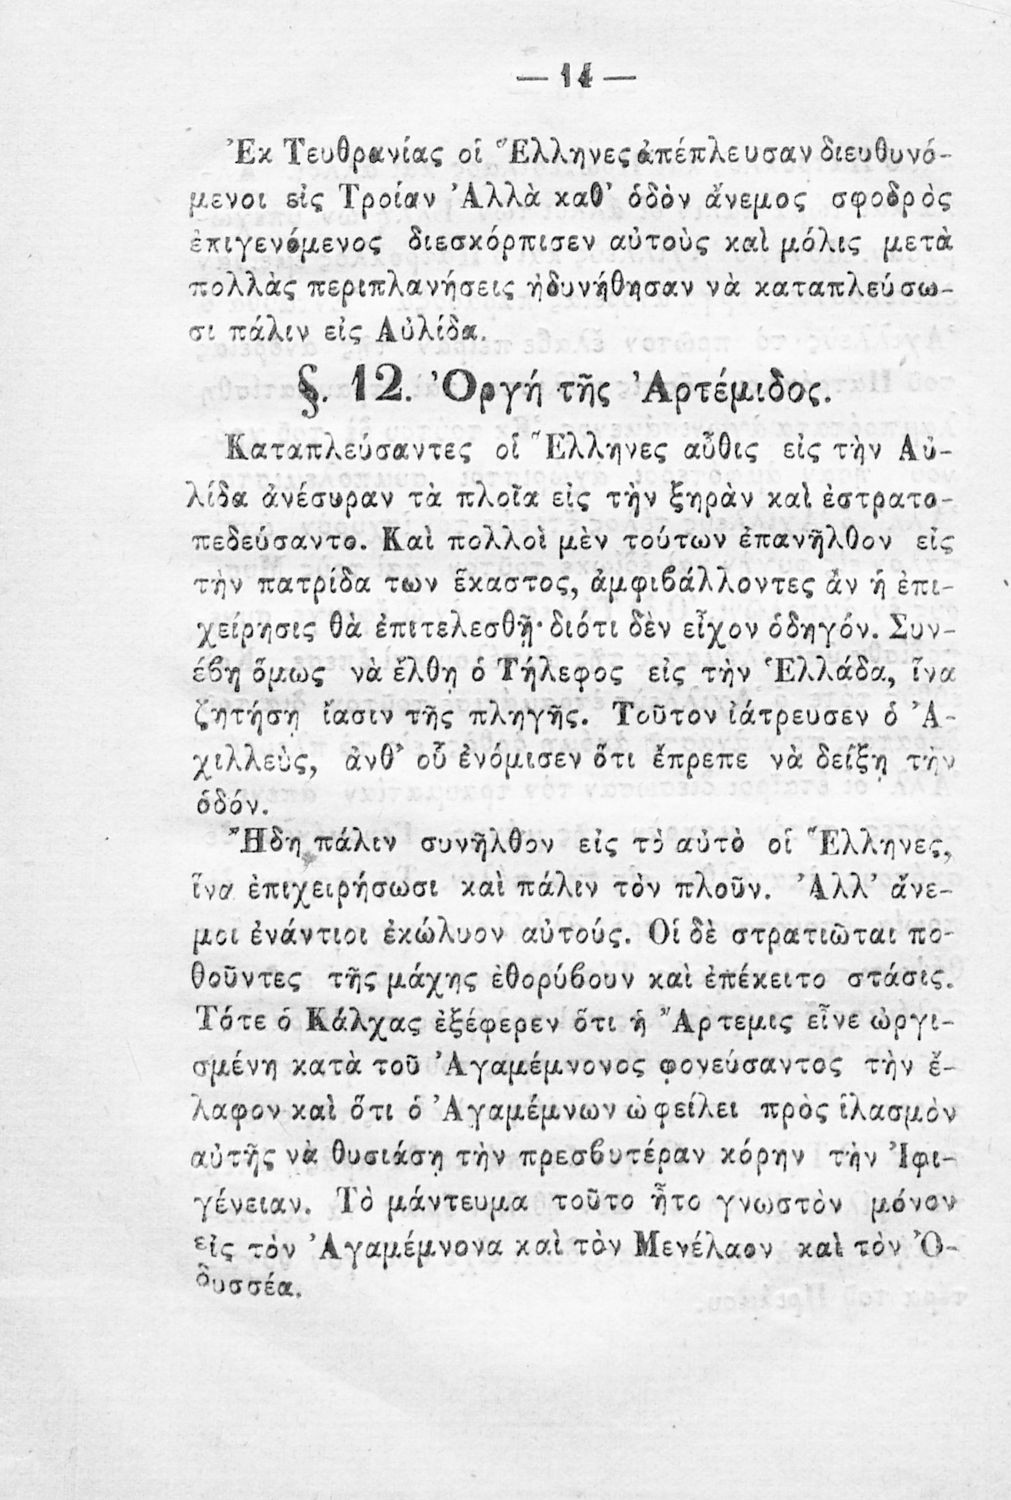 — 14 —
Ἐκ Τευθρανίας οἱ Ἕλληνες ἀπέπλευσαν διευθυνό-
μενοι εἰς Τροίαν Ἀλλὰ καθ' ὁδὸν ἄνεμος σφοδρὸς
ἐπιγενόμενος διεσκόρπισεν αὐτοὺς καὶ μόλις μετὰ
πολλὰς περιπλανήσεις ἠδυνήθησαν νὰ καταπλεύσω-
σι πάλιν εἰς Αὐλίδα.
§. 12. Ὀργή τῆς Ἀρτέμιδος.
Καταπλεύσαντες οἱ Ἕλληνες αὖθις εἰς τὴν Αὐ-
λίδα ἀνέσυραν τὰ πλοῖα εἰς τὴν ξηρὰν καὶ ἐστρατο-
πεδεύσαντο. Καὶ πολλοὶ μὲν τούτων ἐπανῆλθον εἰς
τὴν πατρίδα των ἕκαστος, ἀμφιβάλλοντες ἂν ἡ ἐπι-
χείρησις θὰ ἐπιτελεσθῇ· διότι δὲν εἶχον ὁδηγόν. Συν-
έβη ὅμως νὰ ἔλθῃ ὁ Τήλεφος εἰς τὴν Ἑλλάδα, ἵνα
ζητήσῃ ἴασιν τῆς πληγῆς. Τοῦτον ἰάτρευσεν ὁ Ἀ-
χιλλεὺς, ἀνθ' οὗ ἐνόμισεν ὅτι ἔπρεπε νὰ δείξῃ τὴν
ὁδόν.
Ἤδη πάλιν συνῆλθον εἰς τὸ αὐτὸ οἱ Ἕλληνες,
ἵνα ἐπιχειρήσωσι καὶ πάλιν τὸν πλοῦν. Ἀλλ' ἄνε-
μοι ἐνάντιοι ἐκώλυον αὐτούς. Οἱ δὲ στρατιῶται πο-
θοῦντες τῆς μάχης ἐθορύβουν καὶ ἐπέκειτο στάσις.
Τότε ὁ Κάλχας ἐξέφερεν ὅτι ἡ Ἄρτεμις εἶνε ὠργι-
σμένη κατὰ τοῦ Ἀγαμέμνονος φονεύσαντος τὴν ἔ-
λαφον καὶ ὅτι ὁ Ἀγαμέμνων ὠφείλει πρὸς ἱλασμὸν
αὐτῆς νὰ θυσιάσῃ τὴν πρεσβυτέραν κόρην τὴν Ἰφι-
γένειαν. Τὸ μάντευμα τοῦτο ἦτο γνωστὸν μόνον
εἰς τὸν Ἀγαμέμνονα καὶ τὸν Μενέλαον καὶ τὸν Ὀ-
δυσσέα.